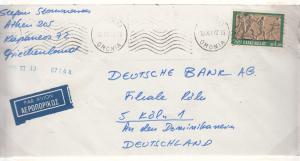 Stefan
Athen 205
Kapaneos 72
Griechenland
ΟΜΟΝΙΑ
ΟΜΟΝΙΑ
PAR AVION
ΑΕΡΟΠΟΡΙΚΩΣ
DEUTSCHE BANK AG.
Filiale Köln
5 KÖLN 1
An den Dominikanern
DEUTSCHLAND